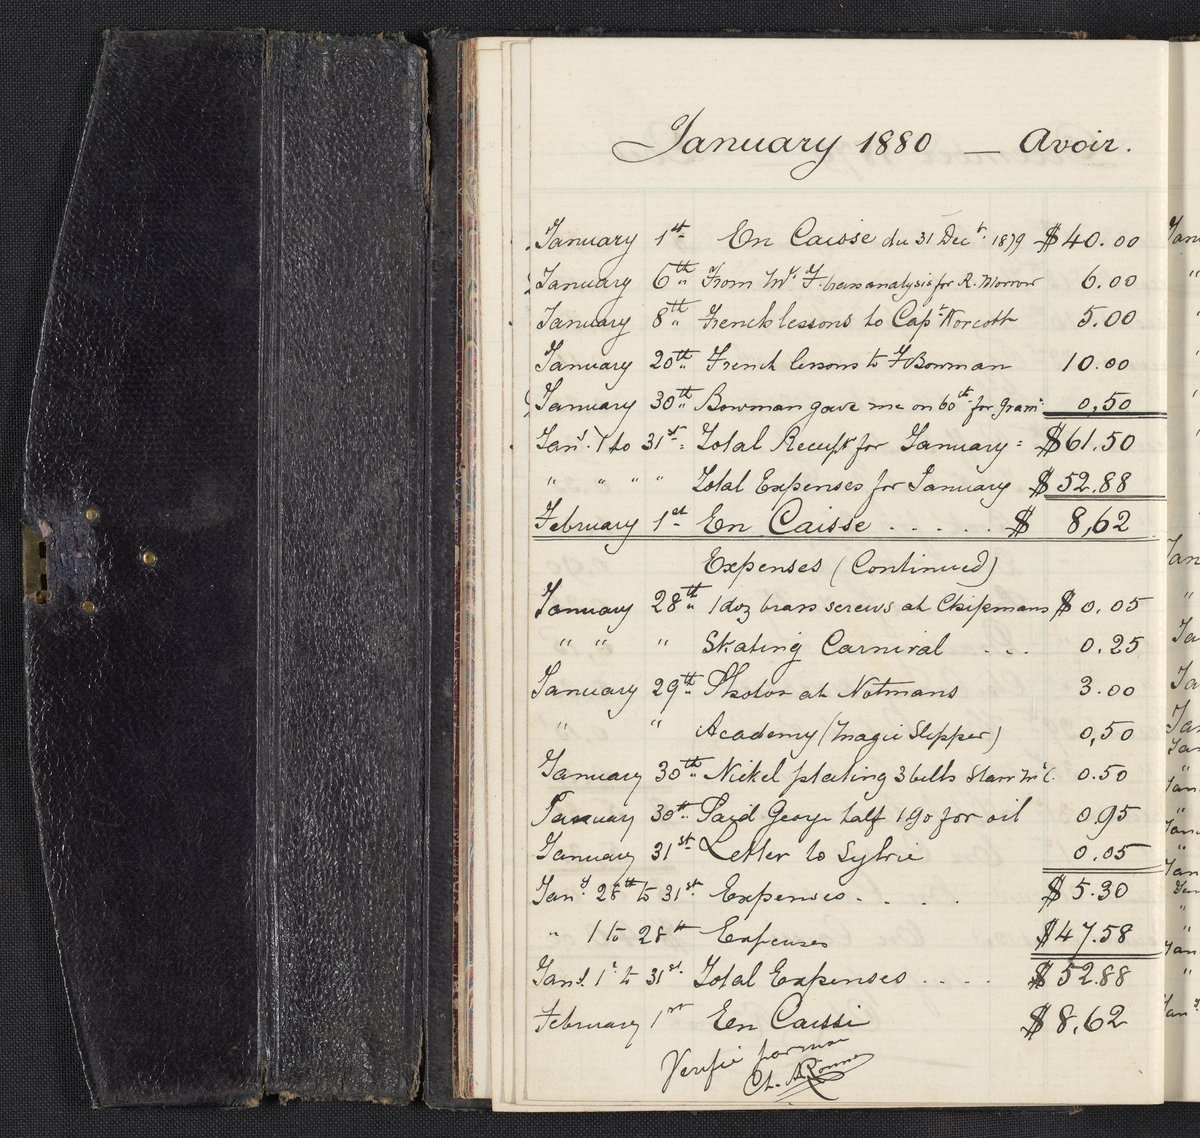 January 1880 — Avoir.
January 1st En Caisse du 31 Dect. 1879 $40.00
January 6th From brass analysis for R. Morrow 6.00
January 8th French lessons to Capt Norcott 5.00
January 20th French lessons to F Bowman 10.00
January 30th Bowman gave me on 60ct for gram 0,50
Jany. 1 to 31st. Total Receipt for January = $61.50
" " " " Total Expenses for January $52.88
February 1st En Caisse . . . . . $ 8,62
Expenses (Continued)
January 28th 1 doz brass screws at Chipmans $0.05
" " " Skating Carnival . . . 0.25
January 29th Photos at Notmans 3.00
" " Academy (Magic Slipper) 0,50
January 30th Nickel plating 3 bells Starr 0.50
January 30th Paid George half 190 for oil 0.95
January 31st Letter to Sylvie 0.05
Jany 28th to 31st. Expenses . . . . . $5.30
" 1 to 28th Expenses $47.58
Jany. 1r to 31st. Total Expenses . . . . $52.88
February 1st En Caissi $8,62
Verifie par moi
Ch.